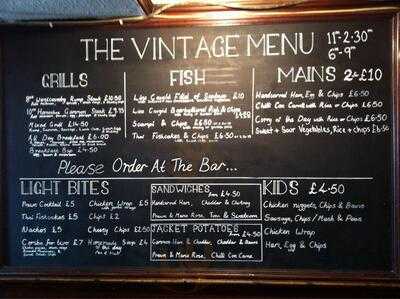 THE VINTAGE MENU
11-2·30
6-9
GRILLS
8oz Rump Steak £10.50
10oz Gammon Steak £9.95
Mixed Grill £14.50
All Day Breakfast £6.00
Breakfast Bap £4.50
FISH
Line Caught Fillet of £10
Line Caught Fish & Chips
Scampi & Chips £6.80
Thai Fishcakes & Chips £6.50
MAINS 2 £10
Handcarved Ham, Egg & Chips £6.50
Chilli Con Carne with Rice or Chips £6.50
Curry of the Day with Rice or Chips £6.50
Sweet + Sour Vegetables, Rice + Chips £6.50
Please Order At The Bar...
LIGHT BITES
Prawn Cocktail £5
Thai Fishcakes £5
Nachos £5
Combo for two £7
Chicken Wrap £5
Chips £2
Cheesy Chips £2.50
Homemade Soup £4
SANDWICHES from £4.50
Handcarved Ham, Cheddar & Chutney
Prawn & Marie Rose, Tuna & Sweetcorn
JACKET POTATOES £4.50
Ham & Cheddar, Cheddar & Beans
Prawn & Marie Rose, Chilli Con Carne
KIDS £4-50
Chicken nuggets, Chips & Beans
Sausage, Chips / Mash & Peas
Chicken Wrap
Ham, Egg & Chips